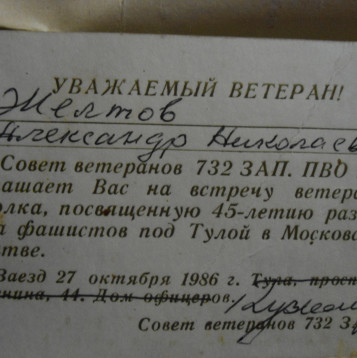 УВАЖАЕМЫЙ ВЕТЕРАН!
Желтов
Александр Николаев
Совет ветеранов 732 ЗАП. ПВО
ашает Вас на встречу ветера
олка, посвященную 45-летию раз
а фашистов под Тулой в Москов
тве.
Заезд 27 октября 1986 г. Тула, просп
нина, 44. Дом офицеров.
Совет ветеранов 732 З